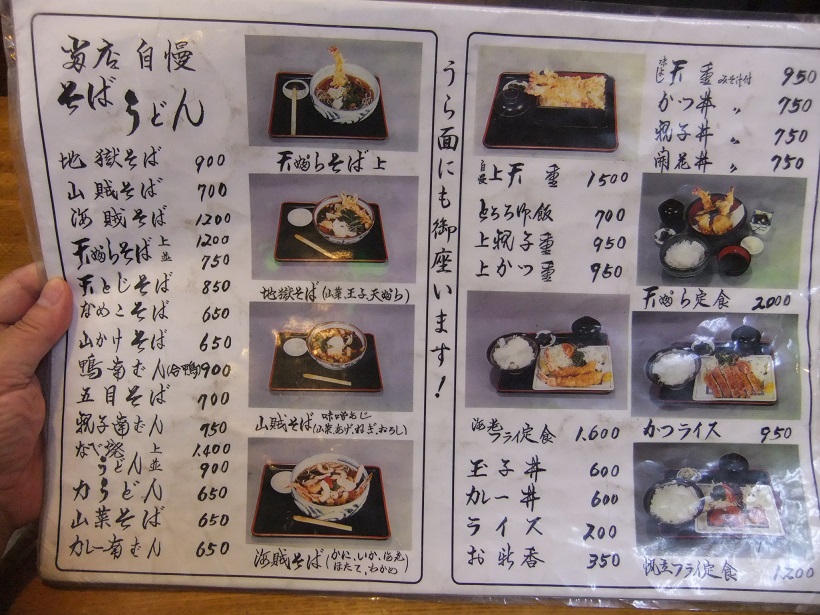 当店自慢
そばうどん
地獄そば 900
山賊そば 700
海賊そば 1200
天ぷらそば 上 1200
並 750
天とじそば 850
なめこそば 650
山かけそば 650
鴨南ばん(合鴨) 900
五目そば 700
親子南ばん 750
なべ焼うどん 上 1,400
並 900
力うどん 650
山菜そば 650
カレー南ばん 650
天ぷらそば上
地獄そば(山菜、玉子、天ぷら)
山賊そば 味噌あじ
(山菜、あげ、ねぎ、おろし)
海賊そば(かに、いか、海老
ほたて、わかめ)
うら面にも御座います!
上天重 1500
とろろ定飯 700
上親子重 950
上かつ重 950
海老フライ定食 1,600
玉子丼 600
カレー丼 600
ライス 200
お新香 350
天重 みそ汁付 950
かつ丼 〃 750
親子丼 〃 750
開花丼 〃 750
天ぷら定食 2000
かつライス 950
帆立フライ定食 1200